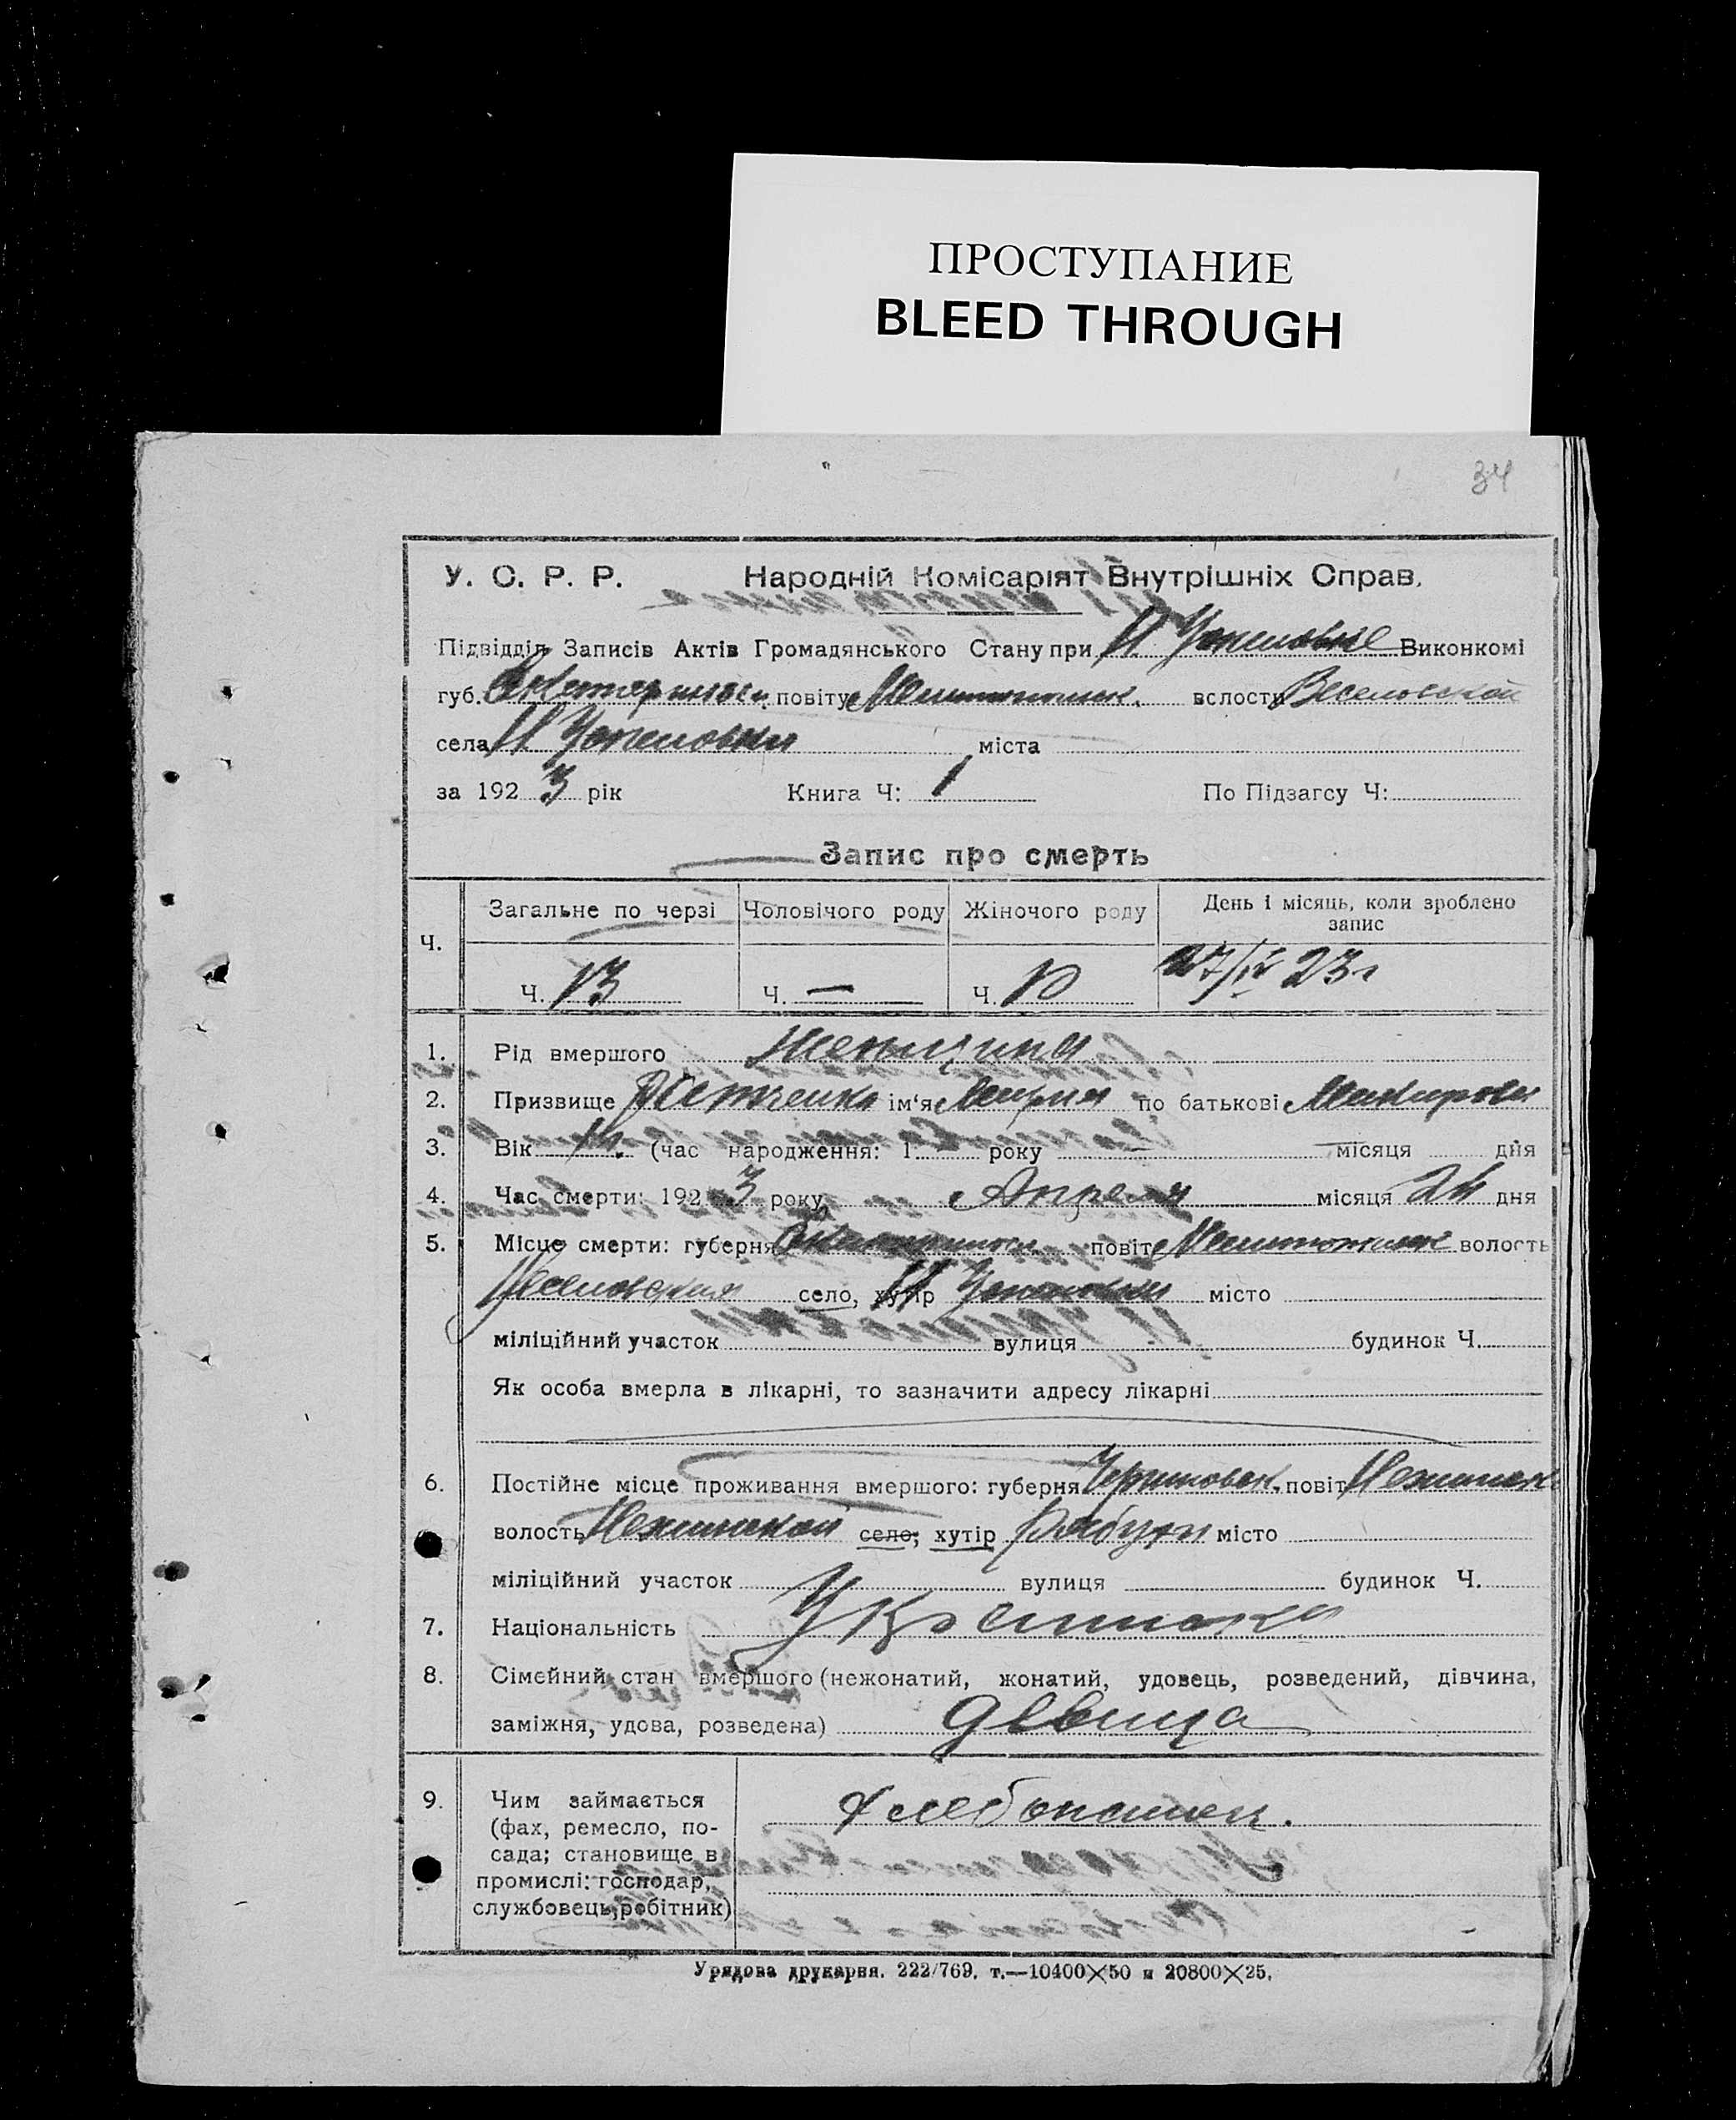 ПРОСТУПАНИЕ
BLEED THROUGH
34
У. С. Р. Р. Народній Комісаріят Внутрішніх Справ.
Підвідділ Записів Актів Громадянського Стану при Н Успеновке Виконкомі
губ. Екатеринос. повіту Мелитопольск. волости Веселовской
села Н Успеновки міста
за 1923 рік Книга Ч: 1 По Підзагсу Ч:
Запис про смерть
Ч. Загальне по черзі Чоловічого роду Жіночого роду День і місяць, коли зроблено запис
Ч. 13 Ч. — Ч. 10 27/IV 23 г
1. Рід вмершого женщина
2. Призвище ім'я Мария по батькові
3. Вік (час народження: 1 року місяця дня
4. Час смерти: 1923 року Апреля місяця 24 дня
5. Місце смерти: губерня Екатериносл. повіт Мелитопольск волость
Веселовская село, хутір Н Успеновки місто
міліційний участок вулиця будинок Ч.
Як особа вмерла в лікарні, то зазначити адресу лікарні
6. Постійне місце проживання вмершого: губерня Черниговск. повіт Нежинск
волость Нежинской село; хутір місто
міліційний участок вулиця будинок Ч.
7. Національність Украинка
8. Сімейний стан вмершого (нежонатий, жонатий, удовець, розведений, дівчина,
заміжня, удова, розведена) девица
9. Чим займається хлебопашец.
(фах, ремесло, по-
сада; становище в
промислі: господар,
службовець, робітник)
Урядова друкарня. 222/769. т.—10400×50 и 20800×25.